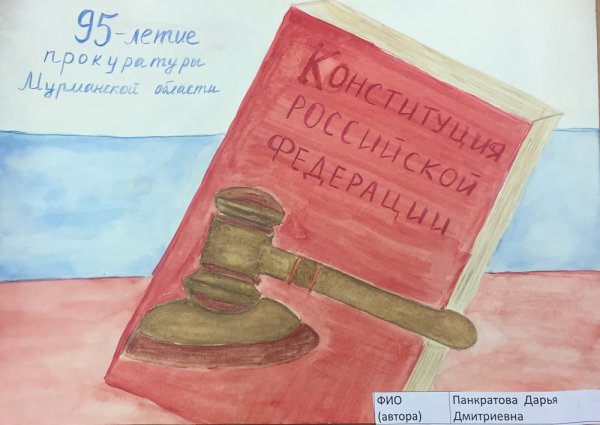 95-летие
прокуратуры
Мурманской области
Конституция
российской
федерации
ФИО Панкратова Дарья
(автора) Дмитриевна